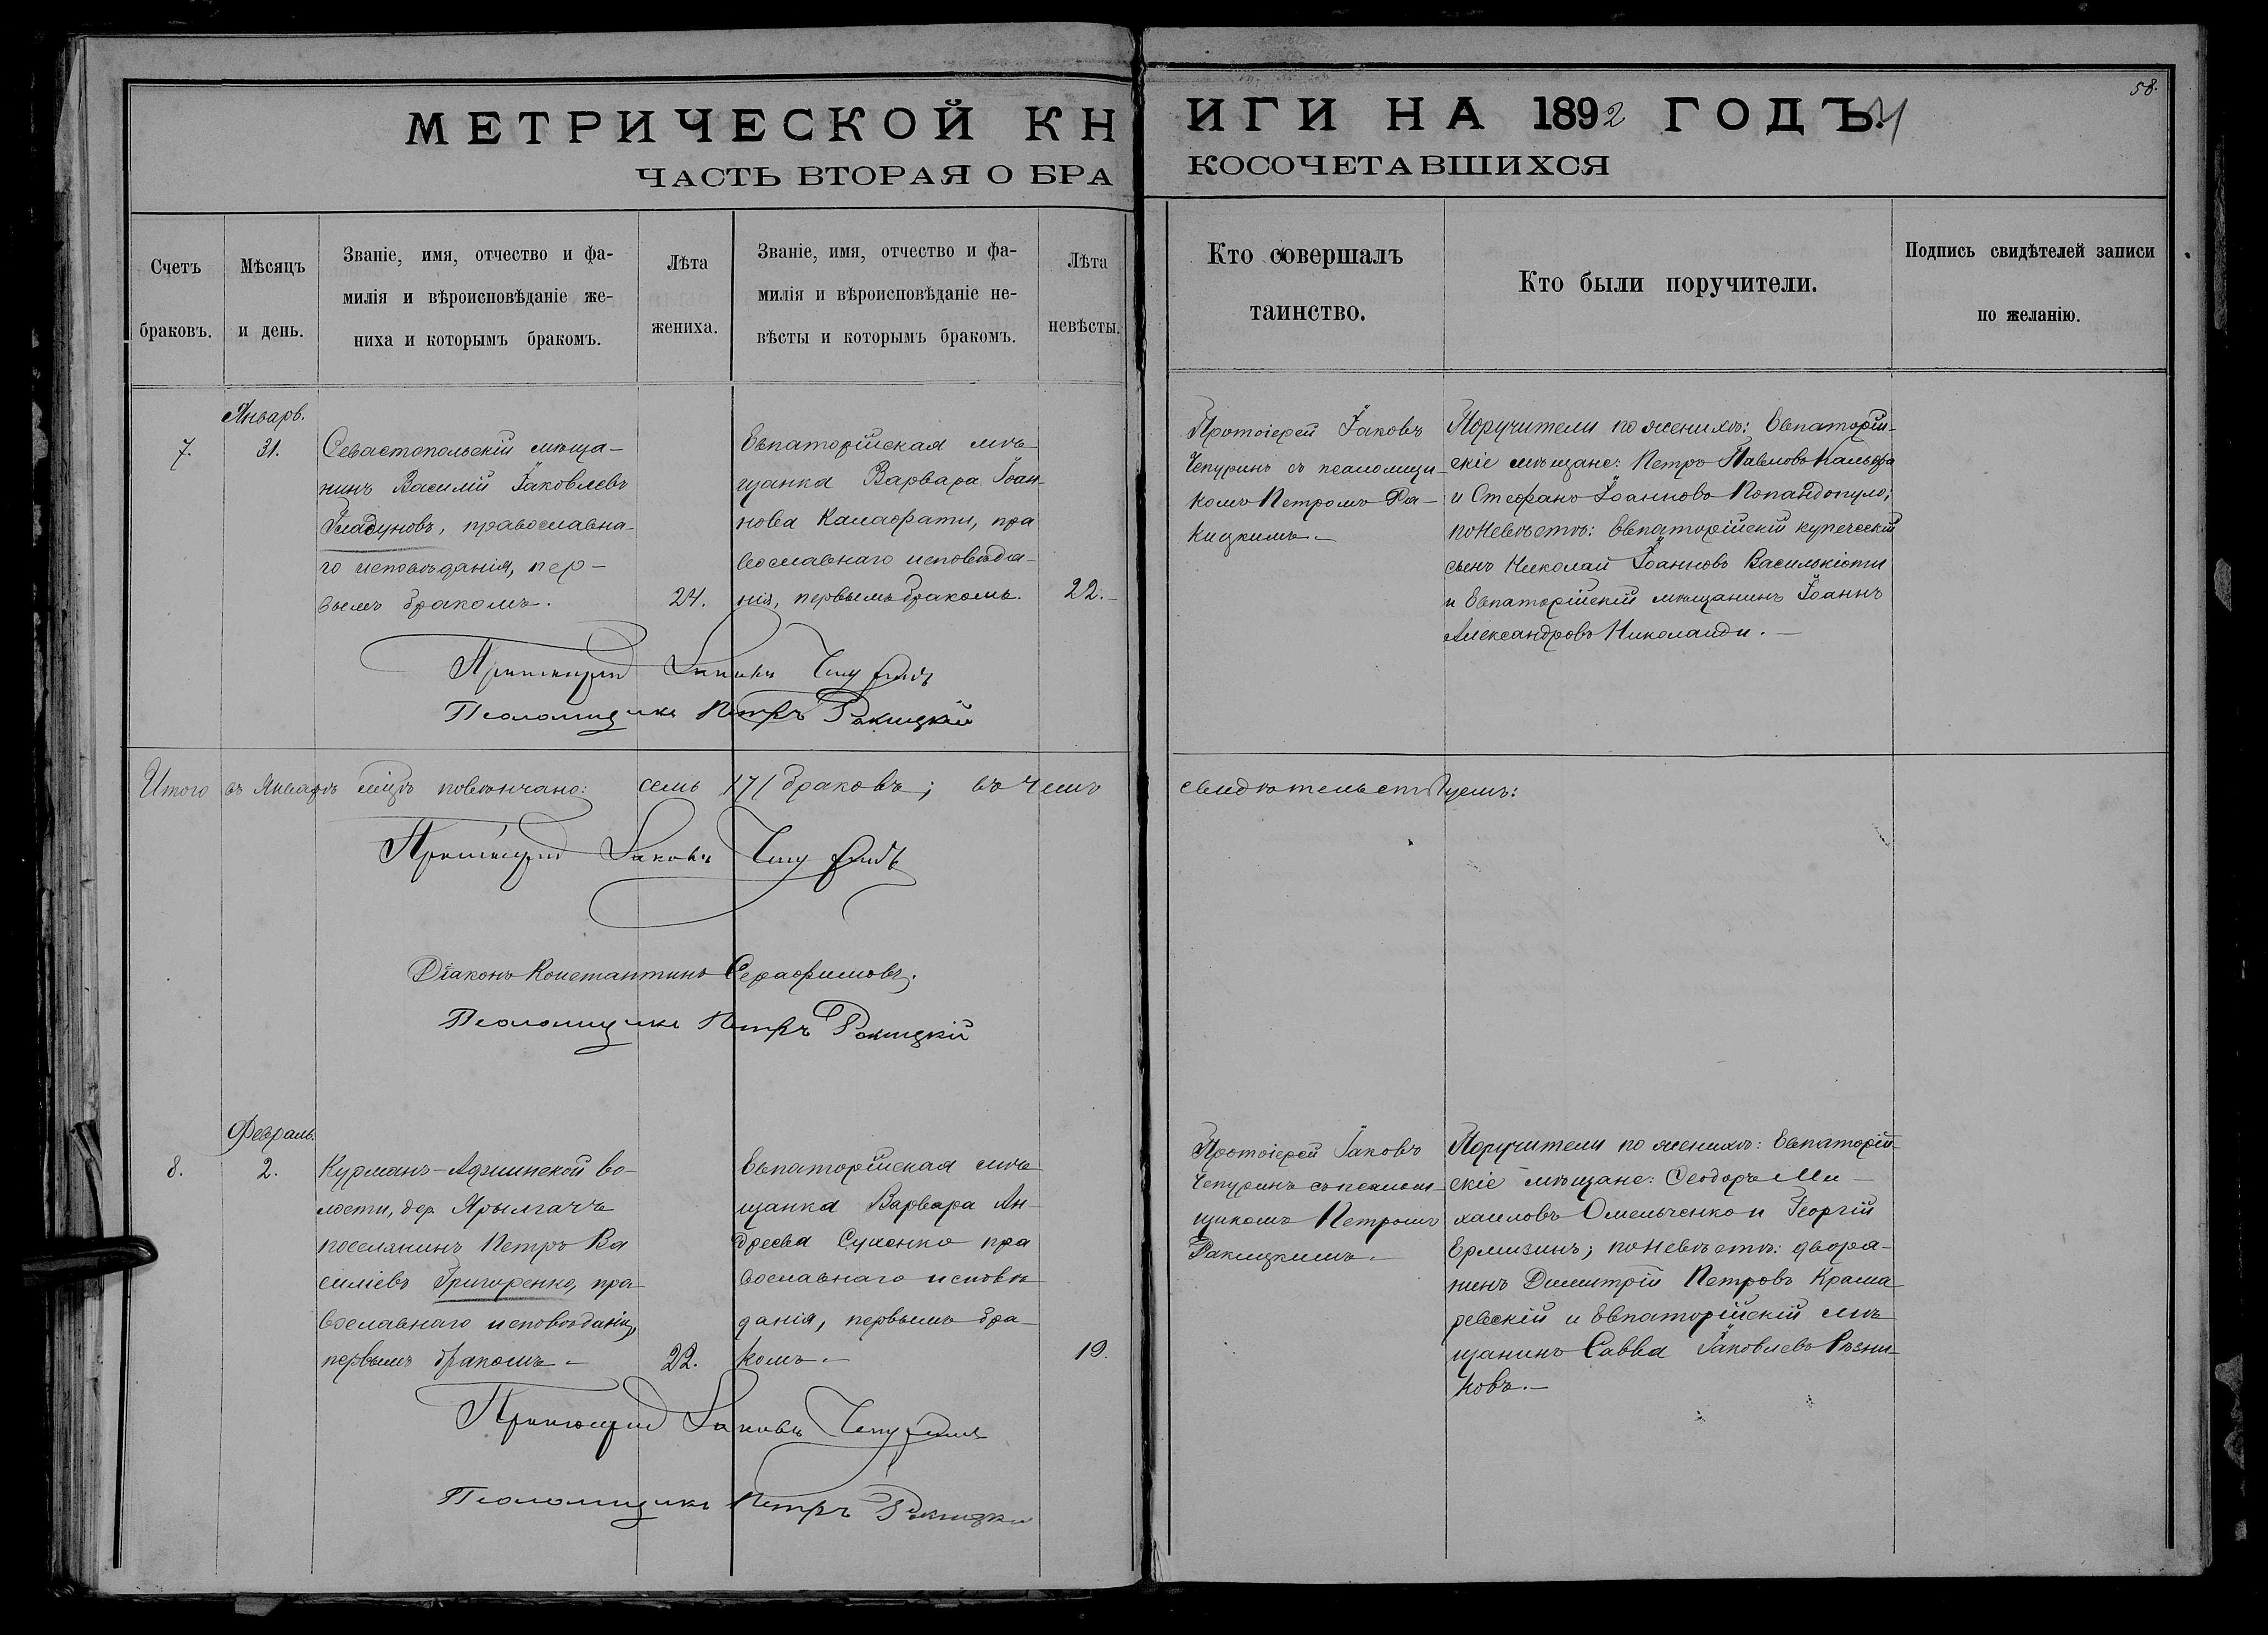 58.
МЕТРИЧЕСКОЙ КНИГИ НА 1892 ГОДЪ.
ЧАСТЬ ВТОРАЯ О БРАКОСОЧЕТАВШИХСЯ
Счетъ
браковъ.
Мѣсяцъ
и день.
Званіе, имя, отчество и фа-
милія и вѣроисповѣданіе же-
ниха и которымъ бракомъ.
Лѣта
жениха.
Званіе, имя, отчество и фа-
милія и вѣроисповѣданіе не-
вѣсты и которымъ бракомъ.
Лѣта
невѣсты.
Кто совершалъ
таинство.
Кто были поручители.
Подпись свидѣтелей записи
по желанію.
7.
Январь.
31.
Севастопольскій мѣща-
нинъ Василій Іаковлевъ
Гладуновъ, православна-
го исповѣданія, пер-
вымъ бракомъ.
24.
Евпаторійская мѣ-
щанка Варвара Іоан-
нова Калафати, пра
вославнаго исповѣда-
нія, первымъ бракомъ.
22.
Протоіерей Іаковъ
Чепуринъ съ псаломщи-
комъ Петромъ Ра-
кицкимъ.
Поручители по женихѣ: Евпаторій-
скіе мѣщане: Петръ Павловъ Кальфа
и Стефанъ Іоанновъ Попандопуло;
по невѣстѣ: Евпаторійскій купеческій
сынъ Николай Іоанновъ Василькіоти
и Евпаторійскій мѣщанинъ Іоаннъ
Александровъ Николаиди.
Протоіерей Іаковъ Чепуринъ
Псаломщикъ Петръ Ракицкій
Итого въ Январѣ мцѣ повѣнчано: семь /7/ браковъ; въ чемъ свидѣтельствуемъ:
Протоіерей Іаковъ Чепуринъ
Діаконъ Константинъ Серафимовъ.
Псаломщикъ Петръ Ракицкій
8.
Февраль.
2.
Курманъ-Аджинской во-
лости, дер. Ярылгачъ
поселянинъ Петръ Ва
силіевъ Григоренко, пра-
вославнаго исповѣданія,
первымъ бракомъ.
22.
Евпаторійская мѣ
щанка Варвара Ан-
дреева Сухенко пра
вославнаго исповѣ
данія, первымъ бра-
комъ.
19.
Протоіерей Іаковъ
Чепуринъ съ псалом-
щикомъ Петромъ
Ракицкимъ.
Поручители по женихѣ: Евпаторій-
скіе мѣщане: Ѳеодоръ Ми-
хаиловъ Омельченко и Георгій
Ермизинъ; по невѣстѣ: дворя-
нинъ Димитрій Петровъ Краша
ревскій и Евпаторійскій мѣ
щанинъ Савва Іаковлевъ Рѣзни-
ковъ.
Протоіерей Іаковъ Чепуринъ
Псаломщикъ Петръ Ракицкій